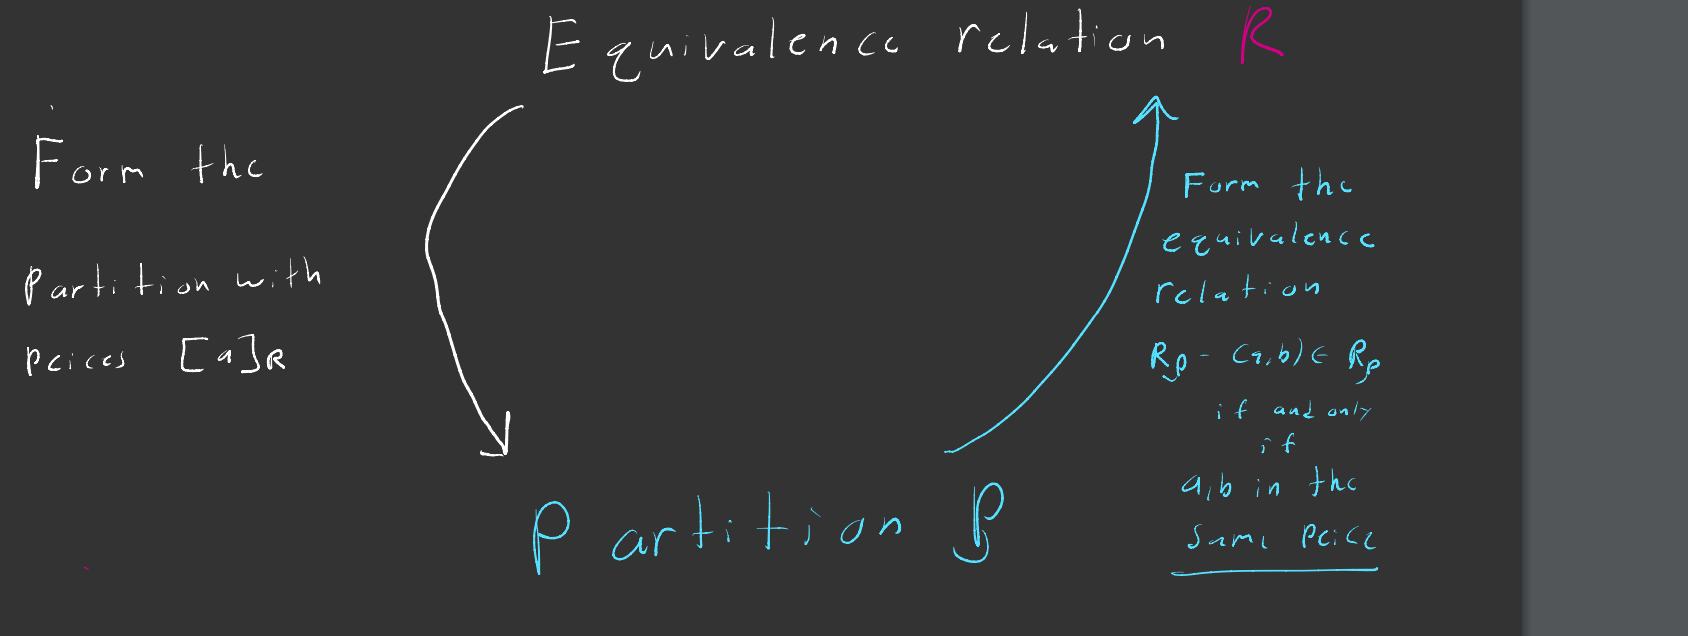 Equivalence relation R
Form the
Partition with
peices [a]R
Form the
equivalence
relation
Rp - (a,b) ∈ Rp
if and only
if
a,b in the
same peice
Partition P